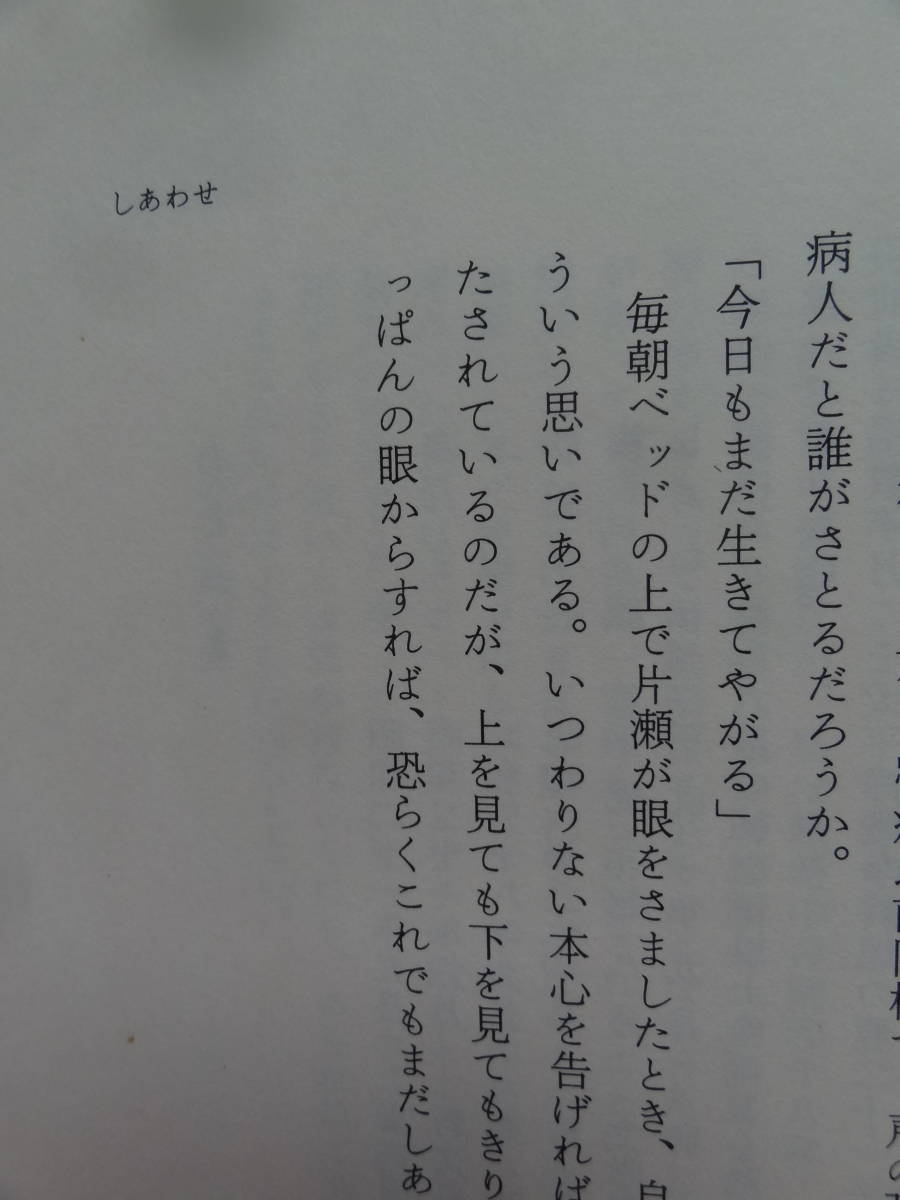 病人だと誰がさとるだろうか。
「今日もまだ生きてやがる」
毎朝ベッドの上で片瀬が眼をさましたとき、
ういう思いである。いつわりない本心を告げれば
たされているのだが、上を見ても下を見てもきり
っぱんの眼からすれば、恐らくこれでもまだしあ
しあわせ